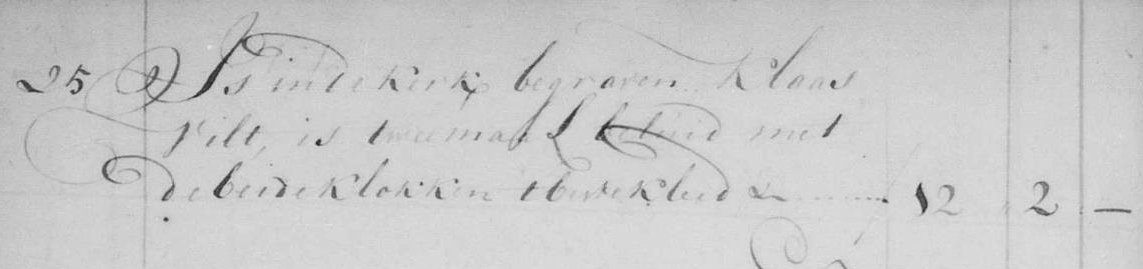 25 Is in de kerk begraven Klaas
Vilt, is tweemaal beluid met
de beide klokken t beste kleed 12 2 —